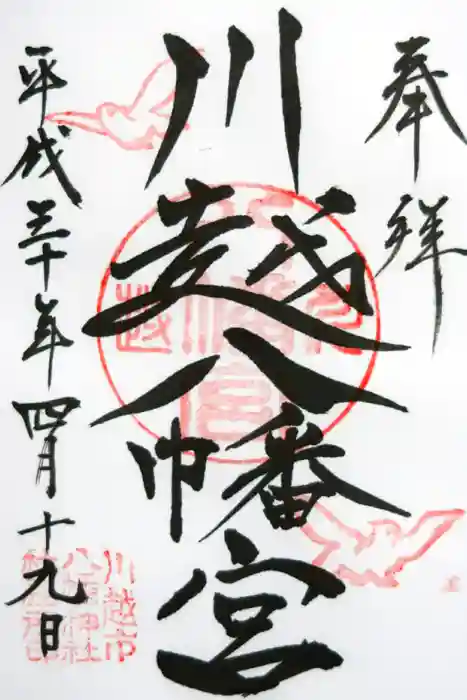 奉拝
川越八幡宮
平成三十年四月十九日
川越市
八幡神社